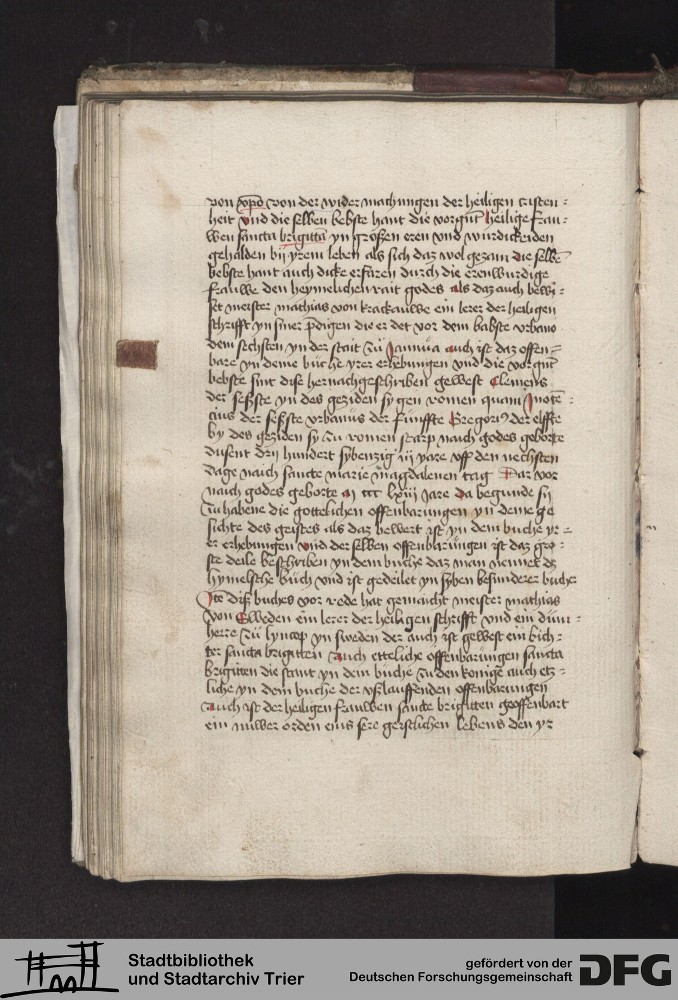 von xp̄o von der wider machungen der heiligen cristen=
heit vnd die selben bebste hant die vorgn̄t heilige frau=
wen sancta brigitta yn groſzen eren vnd wirdickeiden
gehalden bij yrem leben als sich daz wol gezam die selbē
bebste hant auch dicke erfaren durch die erenwurdige
frauwe den heymelichen rait godes als daz auch bewi=
set meister mathias von krackauwe ein lerer der heiligen
schrifft yn siner p̄digen die er det vor dem babste vrbano
dem sechsten yn der stait zů Jannůa auch ist daz offen=
bare yn deme bůche yrer erhebungen vnd die vorgn̄t
bebste sint dise hernachgeschriben gewest Clemens
der seßste yn des geziden sy gen romen quam Jnocē=
cius der seßste vrbanus der fünffte Gregoriꝰ der elffte
by des geziden sy zu romen starp nach godes geborte
dusent drij hundert sybenzig iij yare vff den nechsten
dage naich sancte marie magdalenen tag Dar vor
nach godes geborte m ccc lxiij Jare da begunde sy
zu habene die gottelichen offenbarungen yn deme ge
sichte des geistes als daz bewert ist yn dem buche yr=
er erhebungen vnd der selben offenbarungen ist daz gro=
ste deile beschriben yn dem buche daz man nennet dz
hymelsche bůch vnd ist gedeilet yn syben besunderer buche
Jtē diß buches vor rede hat gemaicht meister mathias
von Sweden ein lerer der heiligen schrifft vnd ein dům=
herre zů lyncop yn sweden der auch ist gewest ein bich=
ter sancta brigitten Auch etteliche offenbarungen sancta
brigitten die stant yn dem buche zu den konigē auch etz=
liche yn dem buche der vßlauffenden offenbarungen
Auch ist der heiligen frauwen sancte brigitten geoffenbart
ein nuwer orden eins sere geistlichen lebens den yr
Stadtbibliothek
und Stadtarchiv Trier
gefördert von der
Deutschen Forschungsgemeinschaft
DFG